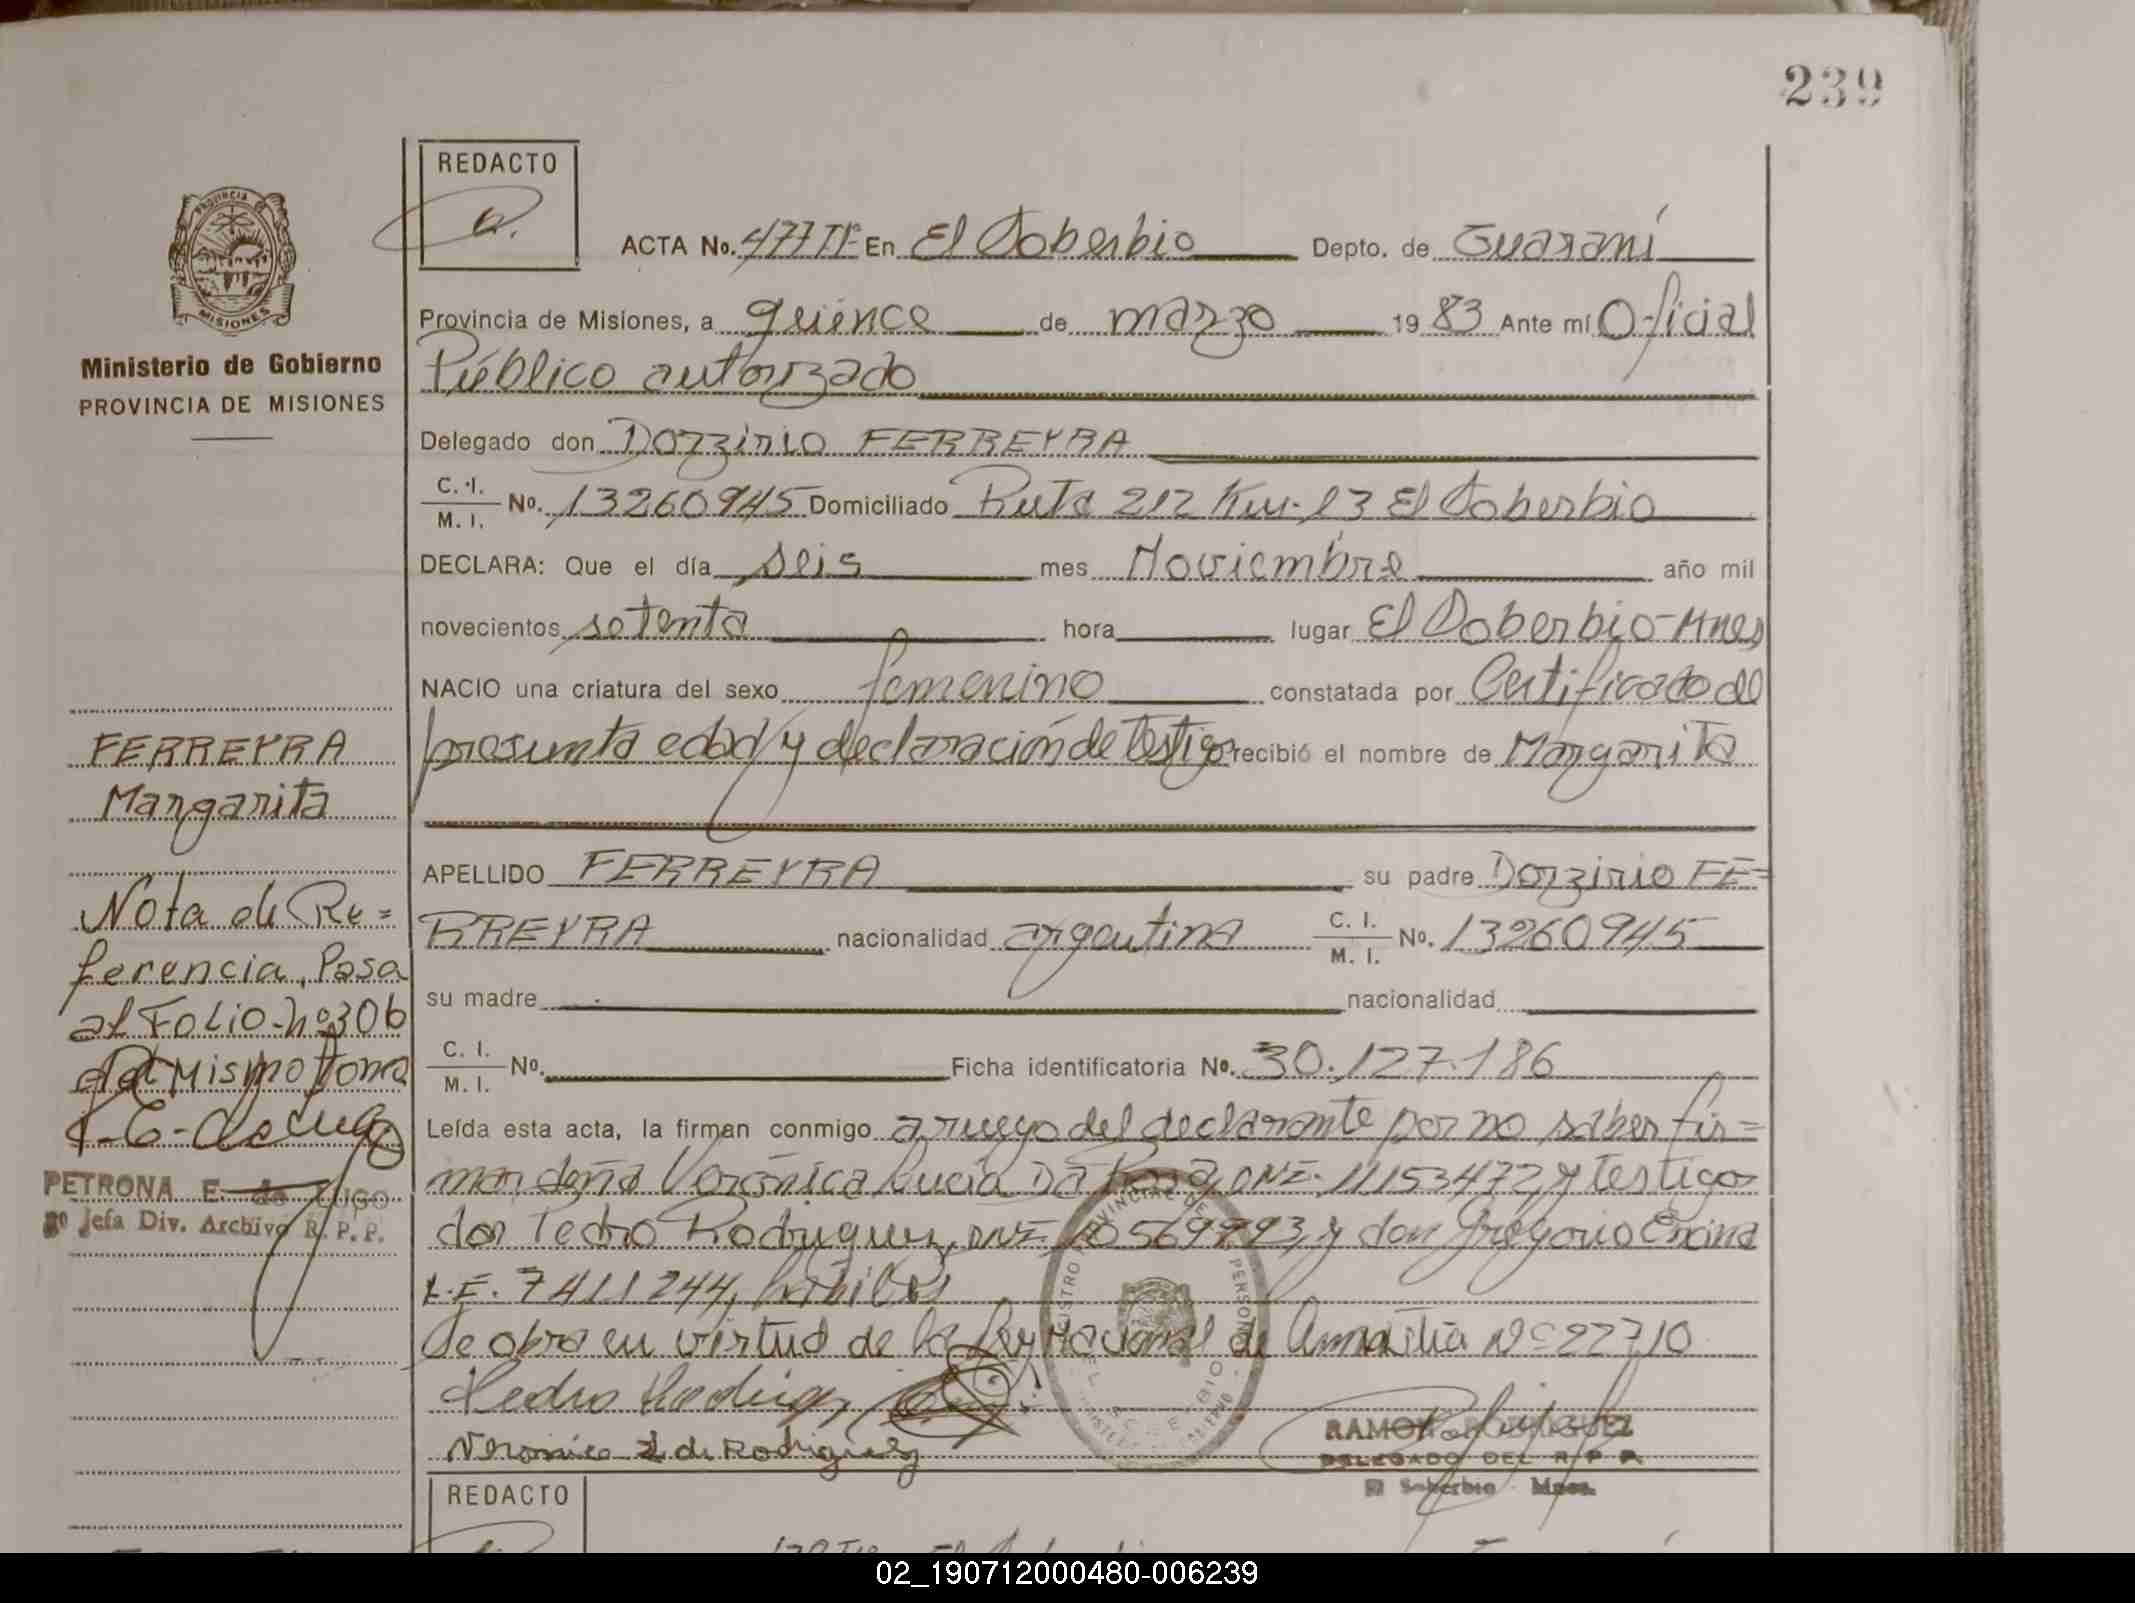 239
REDACTO
PROVINCIA DE
MISIONES
Ministerio de Gobierno
PROVINCIA DE MISIONES
ACTA No. 477 Tº En El Soberbio Depto. de Guaraní
Provincia de Misiones, a quince de marzo 1983 Ante mí Oficial
Público autorizado
Delegado don Dorzirio FERREYRA
C. I.
M. I. No. 13260945 Domiciliado Ruta 212 Km. 13 El Soberbio
DECLARA: Que el día seis mes Noviembre año mil
novecientos setenta hora lugar El Soberbio-Mnes
NACIO una criatura del sexo femenino constatada por Certificado de
presunta edad y declaración de testigo recibió el nombre de Margarita
APELLIDO FERREYRA su padre Dorzirio FE=
RREYRA nacionalidad argentina C. I.
M. I. No. 13260945
su madre nacionalidad
C. I.
M. I. No. Ficha identificatoria No. 30.127.186
Leída esta acta, la firman conmigo a ruego del declarante por no saber fir=
mar doña Verónica Lucía Da Rosa, DNI. 11153472, y testigos
don Pedro Rodriguez, DNI. 10569993, y don Gregorio Encina
L.E. 7411244, hábiles
Se obra en virtud de la Ley Nacional de Amnistía Nº 22710
Pedro Rodriguez
Veronica L de Rodriguez
RAMON RODRIGUEZ
DELEGADO DEL R. P. P.
El Soberbio - Mnes.
FERREYRA
Margarita
Nota de Re=
ferencia, Pasa
al Folio-nº306
del Mismo Tomo
PETRONA E. de LUGO
2º Jefa Div. Archivo R. P. P.
REDACTO
02_190712000480-006239